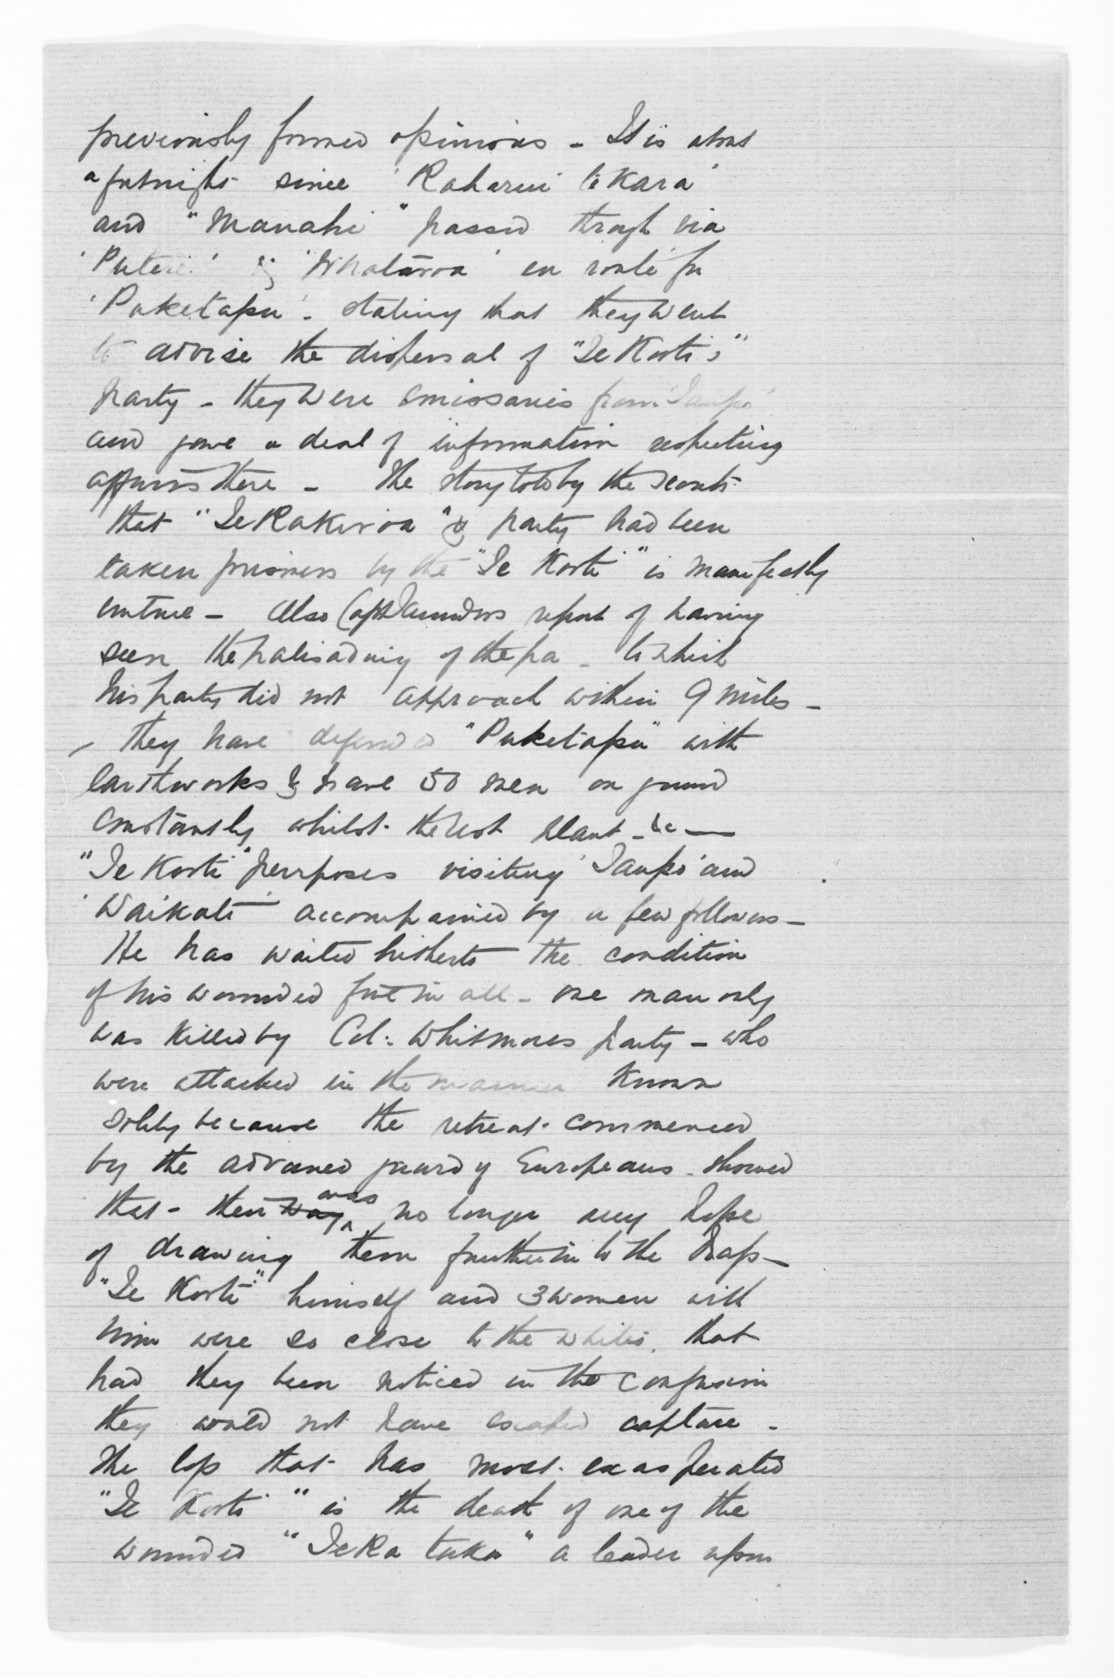 previously formed opinions - It is about
a fortnight since 'Raharui te Kara'
and "Manahi" passed through via
'Putere' & 'Whataroa' en route for
'Puketapu'. stating that they went
to advise the dispersal of "Te Korti's"
party - they were emissaries from 'Taupo'
and gave a deal of information respecting
affairs there - The story told by the scouts
that "Te Rakiroa" & party had been
taken prisoners by the "Te Korti" is manifestly
untrue - also Capt Saunders report of having
seen the palisading of the pa - to which
his party did not approach within 9 miles -
- they have defended "Puketapu" with
earthworks & have 50 men on guard
constantly whilst the rest plant - &c —
"Te Korti" purposes visiting 'Taupo' and
'Waikato' accompanied by a few followers -
He has waited hitherto the condition
of his wounded five in all - one man only
was killed by Col: Whitmores party - who
were attacked in the manner known
solely because the retreat commenced
by the advanced guard of Europeans showed
that there was no longer any hope
of drawing them further into the trap -
"Te Korti" himself and 3 women with
him were so close to the whites, that
had they been noticed in the confusion
they would not have escaped capture -
The loss that has most exasperated
"Te Korti" is the death of one of the
wounded "Te Ra tuka" a leader upon